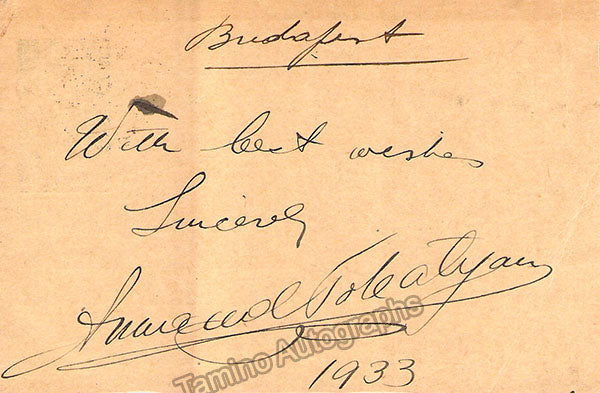 Budapest
With best wishes
Sincerely
Armand Tokatyan
Tamino Autographs
1933